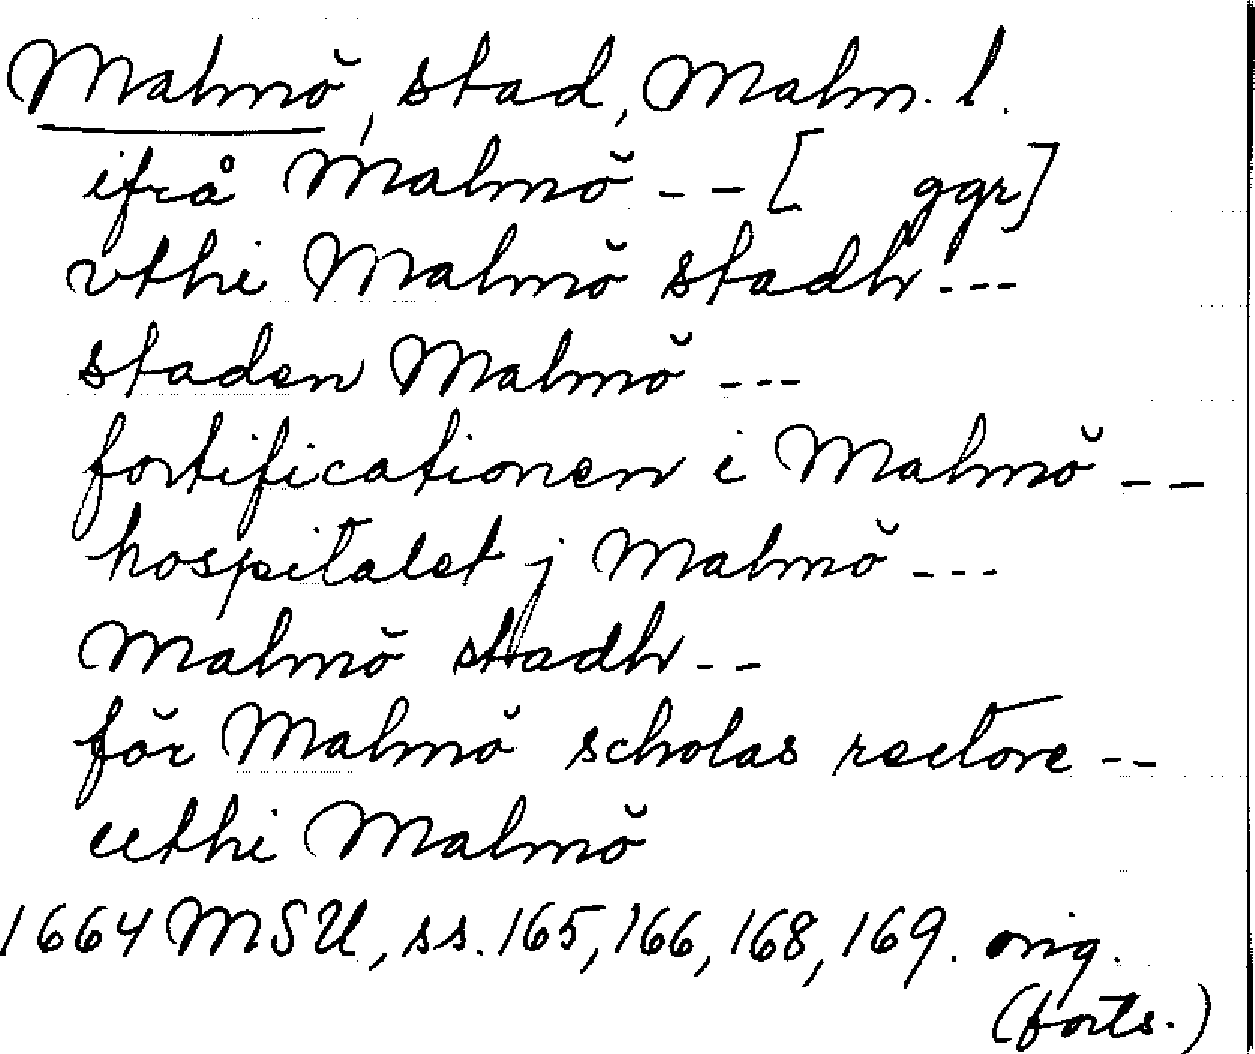 Malmö, stad, Malm. l.
ifrå Malmö -- [ ggr]
vthi Malmö stadh ---
staden Malmö ---
fortificationen i Malmö --
hospitalet j Malmö ---
Malmö stadh --
för Malmö scholas rectore --
uthi Malmö
1664 MSU, ss. 165, 166, 168, 169. orig.
(forts.)